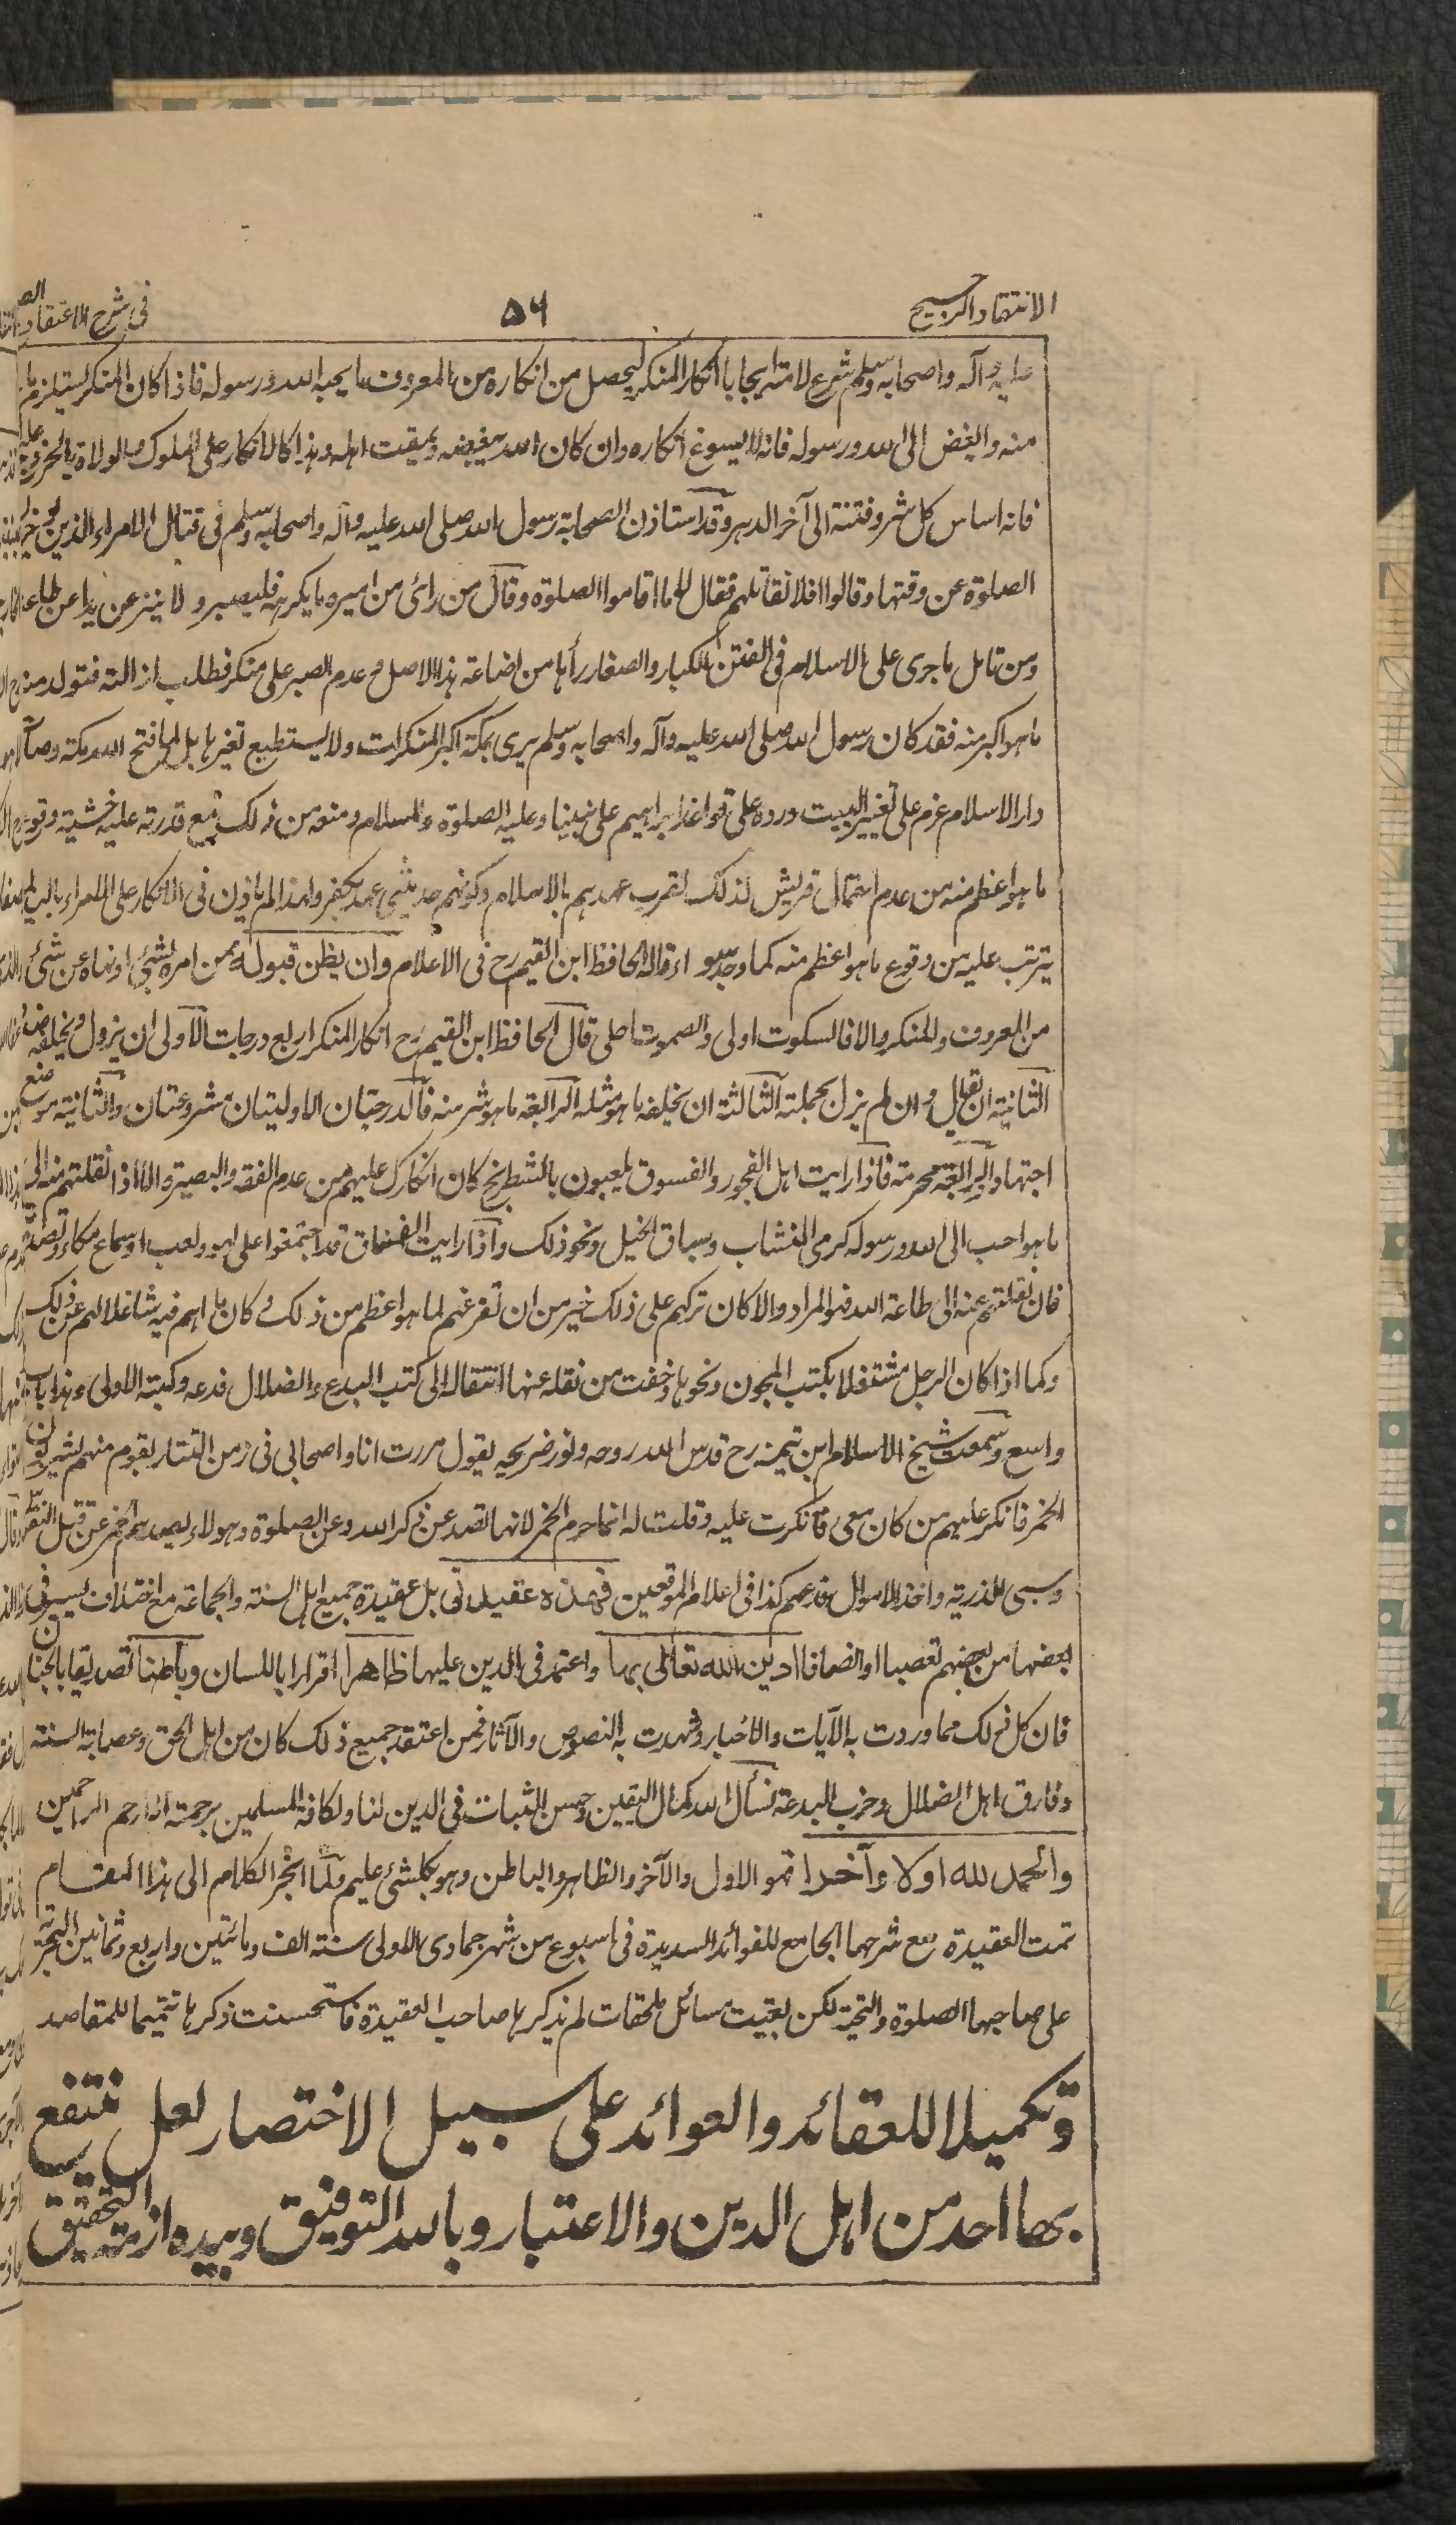 الانتقاد الرجيح
٥٦
فى شرح الاعتقاد الص
عليه وآله واصحابه وسلم شرع لامته ايجاب انكار المنكر ليحصل من انكاره من المعروف ما يحبه الله ورسوله فاذا كان المنكر يستلزم ما
منه والبغض الى الله ورسوله فانه لا يسوغ انكاره وان كان الله يبغضه ويمقت اهله وهذا كالانكار على الملوك والولاة بالخروج عليهم
فانه اساس كل شر وفتنة الى آخر الدهر وقد استاذن الصحابة رسول الله صلى الله عليه وآله واصحابه وسلم فى قتال الامراء الذين يوخرون
الصلوة عن وقتها وقالوا افلا نقاتلهم فقال لا ما اقاموا الصلوة وقال من رائ من اميره ما يكرهه فليصبر ولا ينزعن يدا عن طاعة
ومن تامل ما جرى على الاسلام فى الفتن الكبار والصغار رأها من اضاعة هذا الاصل وعدم الصبر على منكر فطلب ازالته فتولد منه
ما هو اكبر منه فقد كان رسول الله صلى الله عليه وآله واصحابه وسلم يرى بمكة اكبر المنكرات ولا يستطيع تغيرها بل لما فتح الله مكة وصا
دار الاسلام عزم على تغيير البيت ورده على قواعد ابراهيم على نبينا وعليه الصلوة والسلام ومنعه من ذلك مع قدرته عليه خشية وقوع
ما هو اعظم منه من عدم احتمال قريش لذلك لقرب عهدهم بالاسلام وكونهم حديثى عهد بكفر ولهذا لم ياذن فى الانكار على الامراء باليد لما
يترتب عليه من وقوع ما هو اعظم منه كما وجد سو اء قاله الحافظ ابن القيم رح فى الاعلام وان يظن قبوله ممن امره بشئ او نهاه عن شئ
من المعروف والمنكر والا فالسكوت اولى والصموت احلى قال الحافظ ابن القيم رح انكار المنكر اربع درجات الاولى ان يزول ويخلفه ضده
الثانية ان يقل وان لم يزل بجملته الثالثة ان يخلفه ما هو مثله الرابعة ما هو شر منه فالدرجتان الاوليتان مشروعتان والثانية موضع
اجتهاد والرابعة محرمة فاذا رايت اهل الفجور والفسوق يلعبون بالشطرنج كان انكارك عليهم من عدم الفقه والبصيرة الا اذا نقلتهم منه الى
ما هو احب الى الله ورسوله كرمى النشاب وسباق الخيل ونحو ذلك واذا رايت الفساق قد اجتمعوا على لهو ولعب او سماع مكاء وتصدية
فان نقلتهم عنه الى طاعة الله فهو المراد والا كان تركهم على ذلك خير من ان تفرغهم لما هو اعظم من ذلك وكان ما هم فيه شاغلا لهم عن ذلك
وكما اذا كان الرجل مشتغلا بكتب المجون ونحوها وخفت من نقله عنها انتقاله الى كتب البدع والضلال فدعه وكتبه الاولى وهذا باب
واسع وسمعت شيخ الاسلام ابن تيمية رح قدس الله روحه ونور ضريحه يقول مررت انا واصحابى فى زمن التتار بقوم منهم يشربون
الخمر فانكر عليهم من كان معى فانكرت عليه وقلت له انما حرم الخمر لانها تصد عن ذكر الله وعن الصلوة وهولاء يصدهم الخمر عن قتل النفس
وسبى الذرية واخذ الاموال فدعهم كذا فى اعلام الموقعين فهذه عقيدتى بل عقيدة جميع اهل السنة والجماعة مع اختلاف يسير فى
بعضها من بعضهم تعصبا او انصافا ادين الله تعالى بها واعتمد فى الدين عليها ظاهرا اقرارا باللسان وباطنا تصديقا بالجنان
فان كل ذلك مما وردت به الآيات والاخبار وشهدت به النصوص والآثار فمن اعتقد جميع ذلك كان من اهل الحق وعصابة السنة
وفارق اهل الضلال وحزب البدعة نسأل الله كمال اليقين وحسن الثبات فى الدين لنا ولكافة المسلمين برحمته انه ارحم الراحمين
والحمد لله اولا وآخرا هو الاول والآخر والظاهر والباطن وهو بكل شئ عليم ولما انجر الكلام الى هذا المقام
تمت العقيدة مع شرحها الجامع للفوائد السديدة فى اسبوع من شهر جمادى الاولى سنة الف ومائتين واربع وثمانين الهجرية
على صاحبها الصلوة والتحية لكن بقيت مسائل ملحقات لم يذكرها صاحب العقيدة فاستحسنت ذكرها تتميما للمقاصد
وتكميلا للعقائد والعوائد على سبيل الاختصار لعل ينتفع
بها احد من اهل الدين والاعتبار وبالله التوفيق وبيده ازمة التحقيق